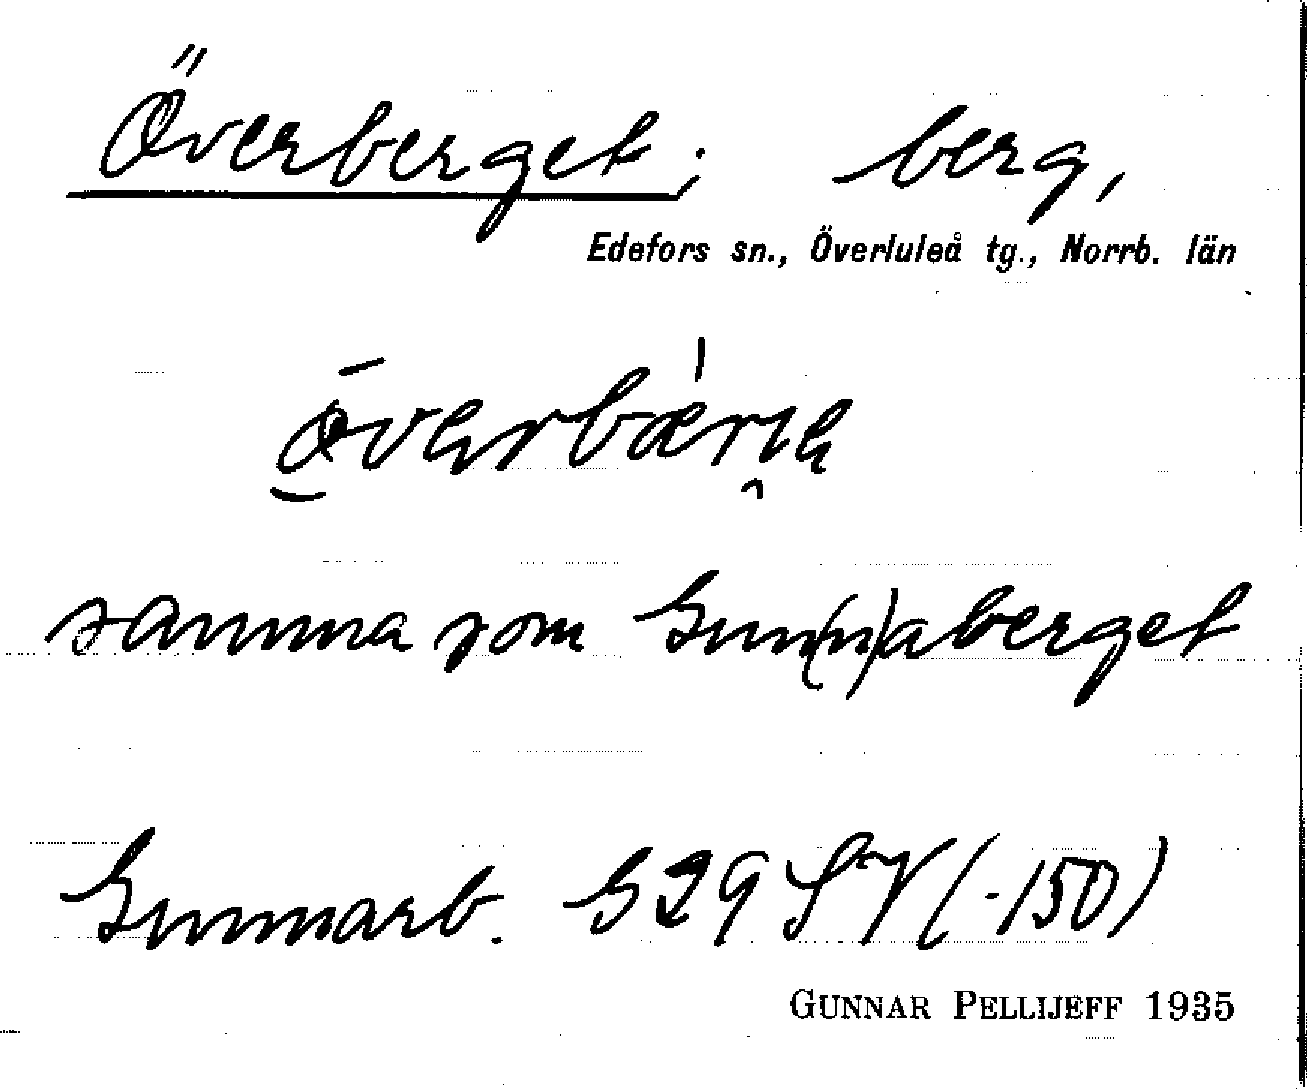 Överberget; berg,
Edefors sn., Överluleå tg., Norrb. län
samma som Gun(n)aberget
Gunnarb. G29 SV (-150)
GUNNAR PELLIJEFF 1935